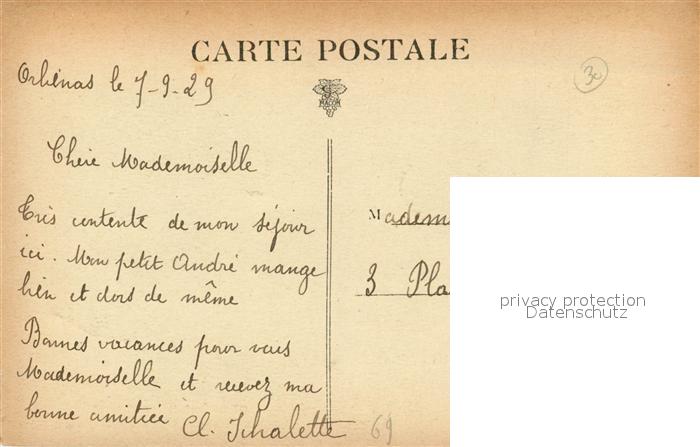 CARTE POSTALE
le 7-9-29
3c
MACON
Chère Mademoiselle
Très contente de mon séjour
ici. Mon petit André mange
bien et dors de même
Bonnes vacances pour vous
Mademoiselle et recevez ma
bonne amitiée Cl.
69
Madem
3 Pla
privacy protection
Datenschutz